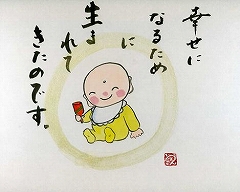 幸せに
なるため
に
生まれて
きたのです。